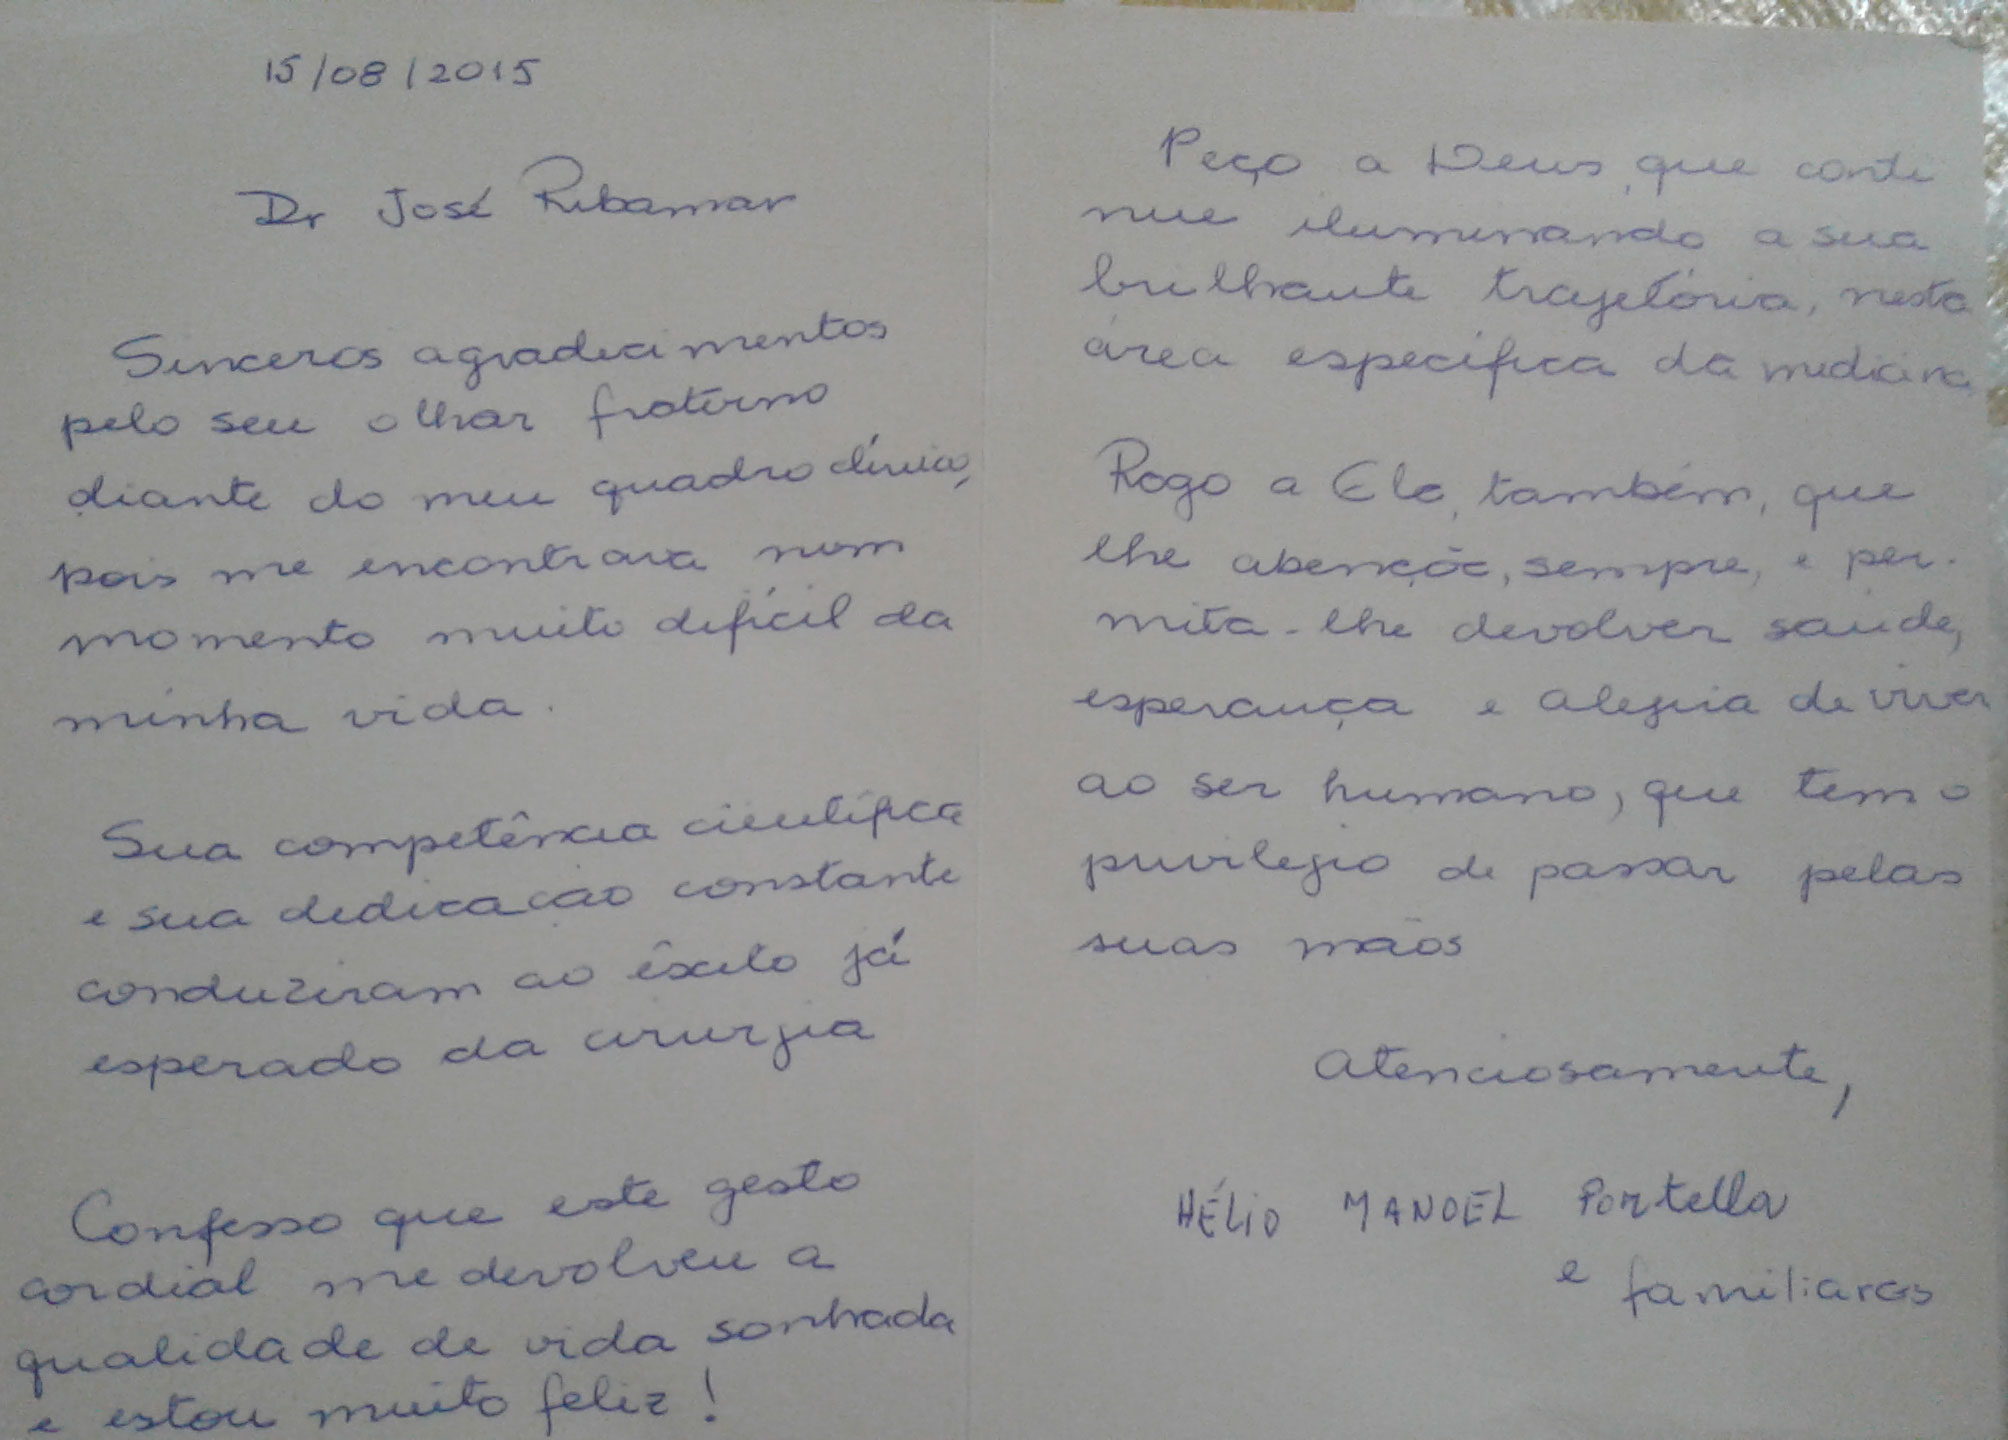 15/08/2015
Dr José Ribamar
Sinceros agradecimentos
pelo seu olhar fraterno
diante do meu quadro clínico,
pois me encontrava num
momento muito difícil da
minha vida.
Sua competência científica
e sua dedicação constante
conduziram ao êxito já
esperado da cirurgia
Confesso que este gesto
cordial me devolveu a
qualidade de vida sonhada
e estou muito feliz!
Peço a Deus, que conti
nue iluminando a sua
brilhante trajetória, nesta
área específica da medicina
Rogo a Ele, também, que
lhe abençõe, sempre, e per-
mita-lhe devolver saúde,
esperança e alegria de viver
ao ser humano, que tem o
privilégio de passar pelas
suas mãos
Atenciosamente,
HÉLIO MANOEL Portella
e familiares